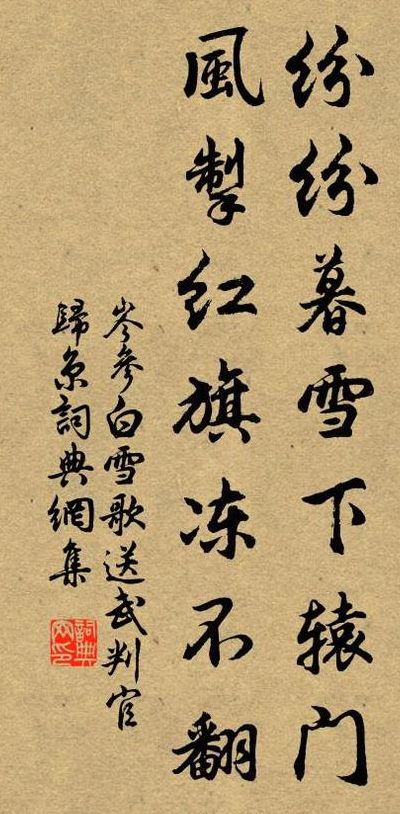 纷纷暮雪下辕门
風掣红旗冻不翻
岑參白雪歌送武判官
歸京詞典網集
詞典网印